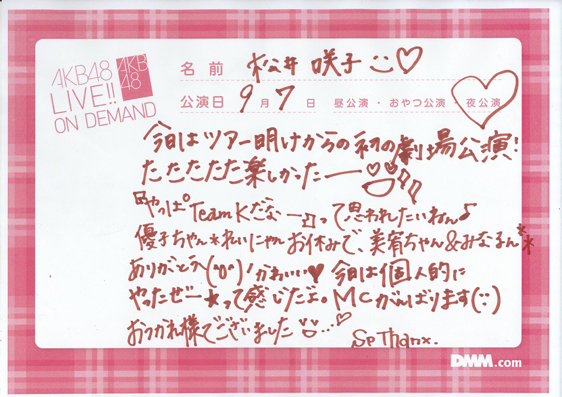 AKB48
LIVE!!
ON DEMAND
AKB
48
名前 松井咲子
公演日 9月7日 昼公演・おやつ公演・夜公演
今日はツアー明けからの初の劇場公演!
たたたたた楽しかったー
『やっぱ TeamKだなー』って思われたいねん♪
優子ちゃん*れいにゃんお休みで、美宥ちゃん&みなるん**
ありがとう(^o^)/かわいい♥ 今日は個人的に
やったぜー★って感じだよ。MCがんばります(:)
おつかれ様でございました
Sp Thanx.
DMM.com